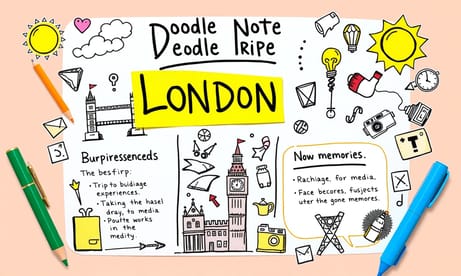 Doodle Note
Deodle Tripe
LONDON
Burpiressenceds
The besfirp:
• Trip to buldiage
experiences.
• Taking the hasel
dray, to media
• Poulte works
in the
medity.
Now memories.
• Rachiage, for media.
• Face becores, fusjects
uter the gone memores.
T